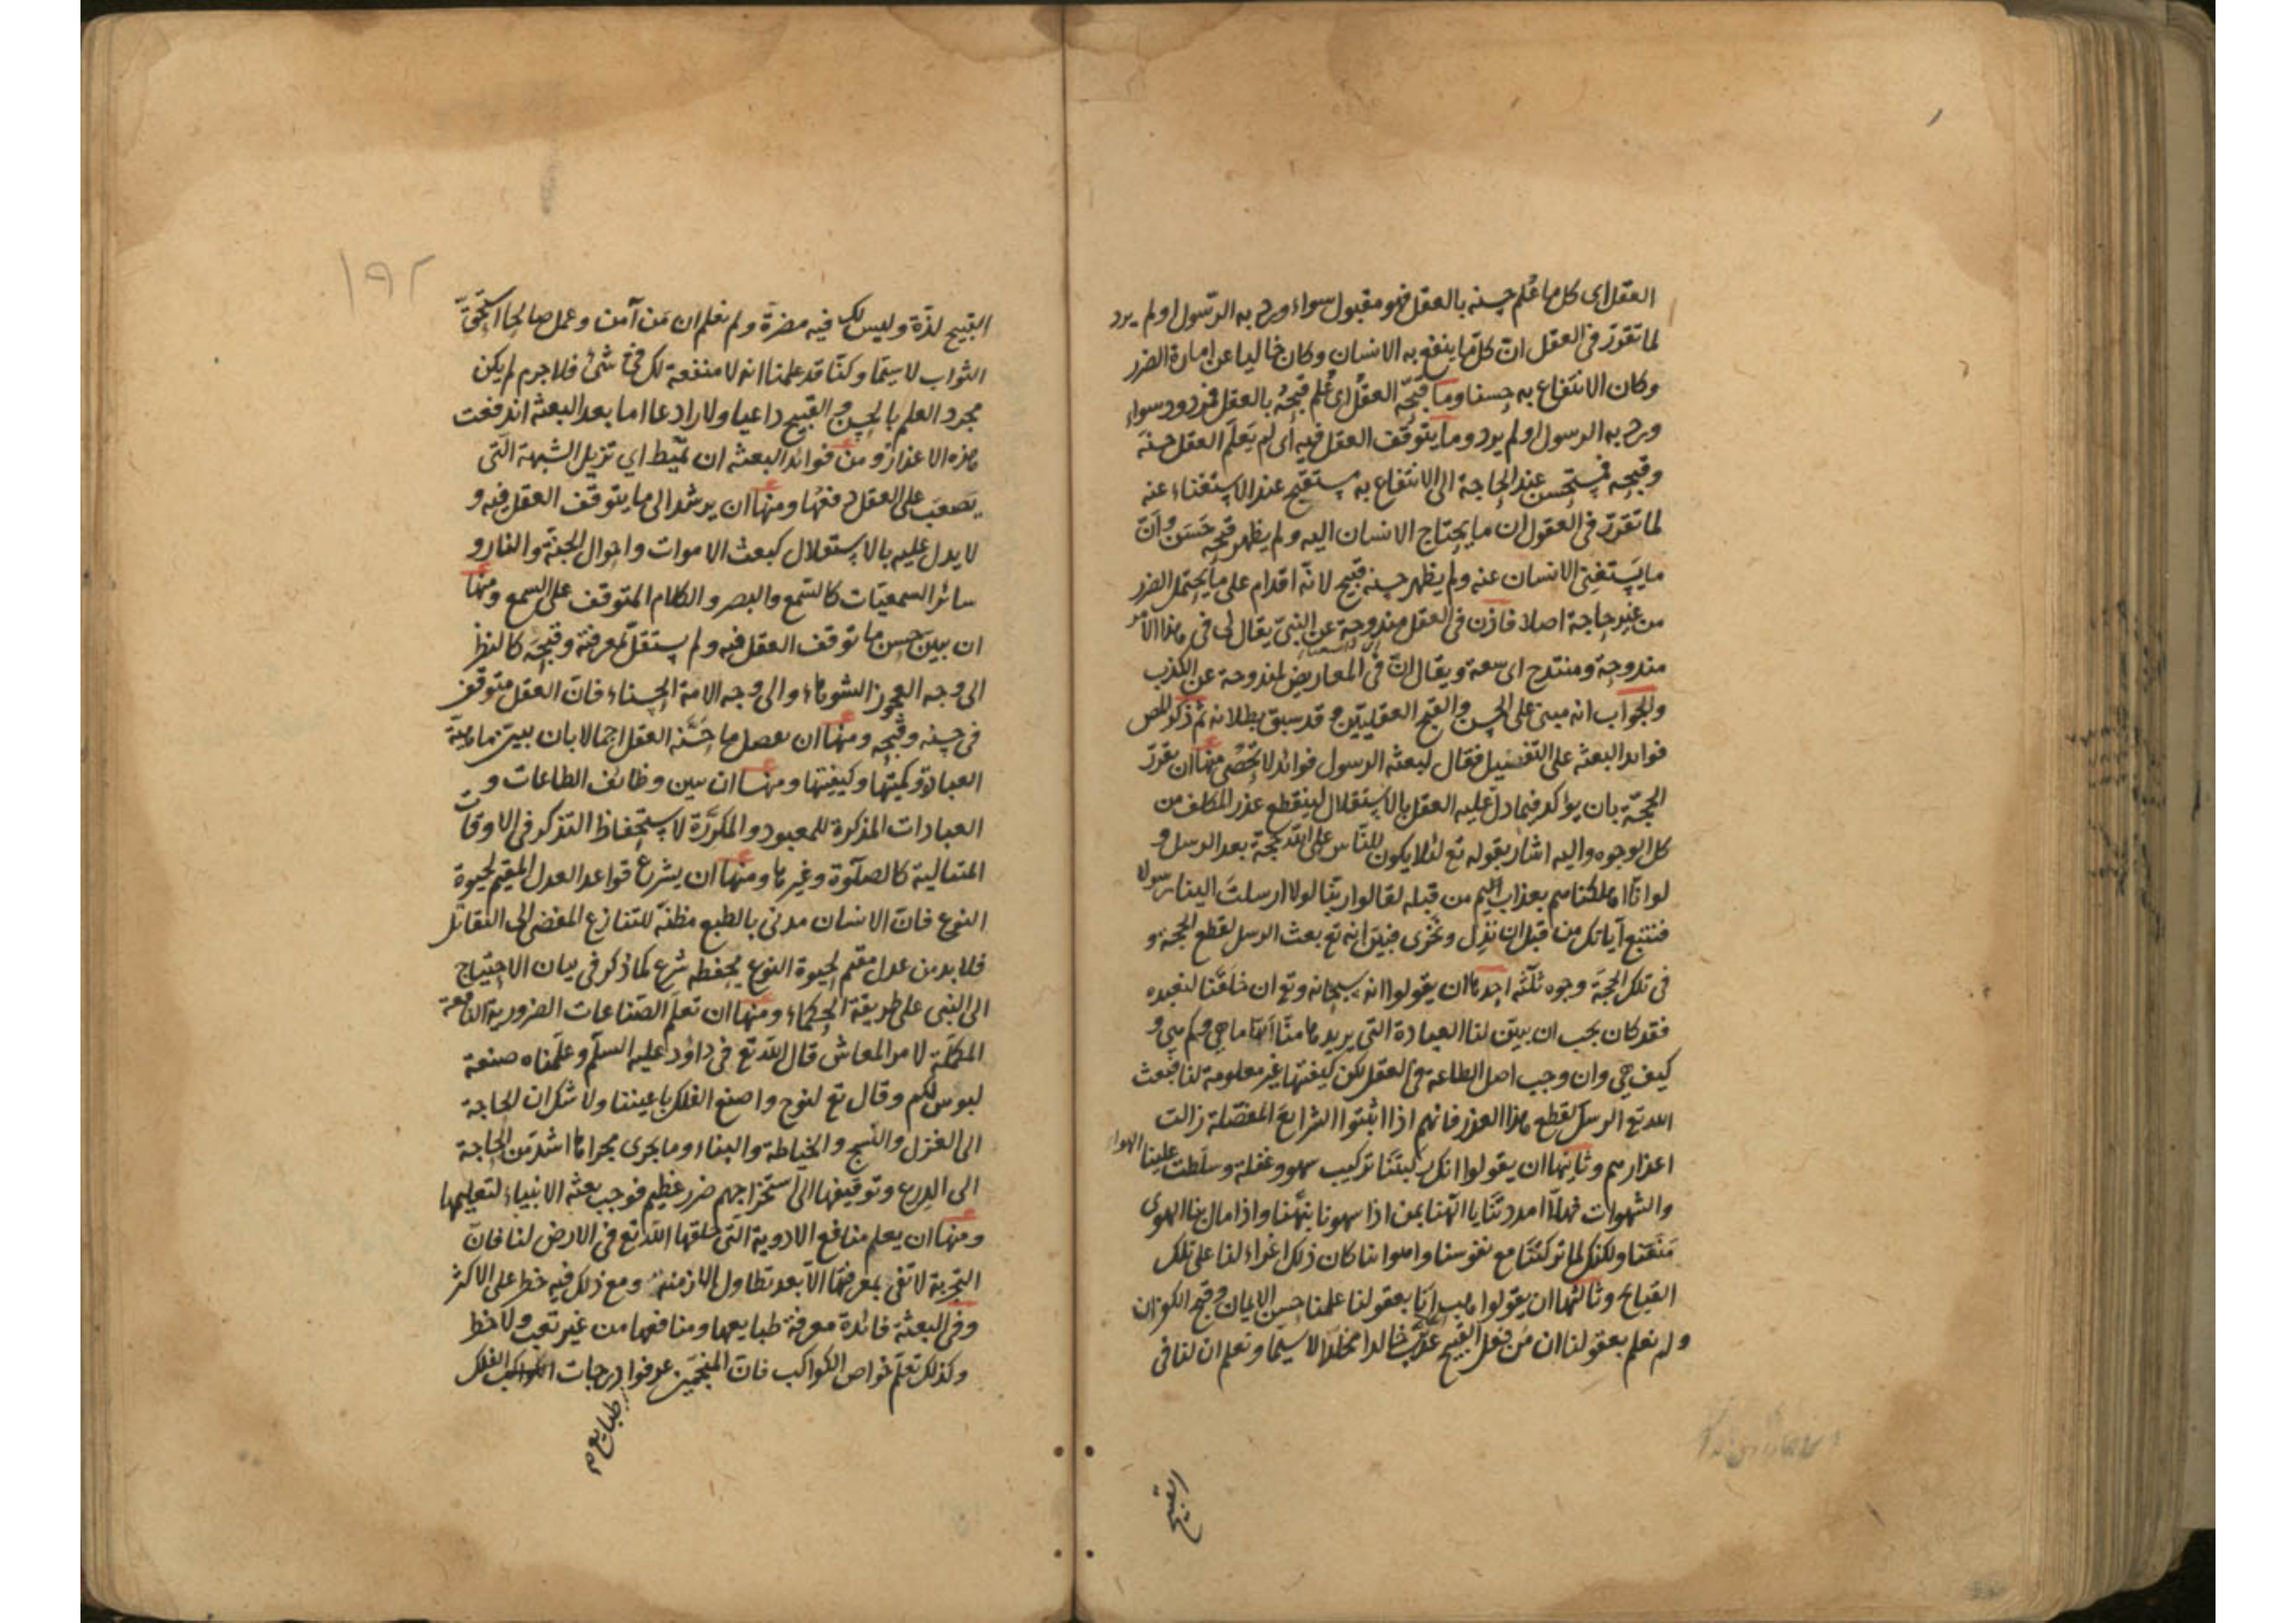 العقل اى كل ما عُلم حسنه بالعقل فهو مقبول سواء ورد به الرّسول او لم يرد
لما تقرّر فى العقل انّ كلّ ما ينتفع به الانسان وكان خاليا عن امارة الضرر
وكان الانتفاع به حسنا وما قبّحه العقل اى عُلم قبحُه بالعقل فمردود سواء
ورد به الرسول او لم يرد وما يتوقف العقل فيه اى لم يَعلَم العقل حسنَه
وقبحه فمستحسن عند الحاجة الى الانتفاع به مستقبح عند الاستغناء عنه
لما تقرّر فى العقول ان ما يحتاج الانسان اليه ولم يظهر قبحه حَسَن وانّ
ما يستغنِى الانسان عنه ولم يظهر حسنه قبيح لانّه اقدام على ما يحتمل الضرر
من غير حاجة اصلا فاذن فى العقل مندوحة عن النبىّ يقال لى فى هذا الامر
مندوحة ومنتدح اى سعة ويقال انّ فى المعاريض لمندوحة عن الكذب
والجواب انه مبنى على الحسن والقبح العقليّين وقد سبق بطلانه ثم ذكر المص
فوايد البعثه على التفصيل فقال لبعثه الرسول فوائد لا تُحصٰى منها ان يقرّر
الحجّة بان يؤاكد فيما دلّ عليه العقل بالاستقلال لينقطع عذر المكلف من
كل الوجوه واليه اشار بقوله تع لئلا يكون للنّاس على الله حجّة بعد الرسل و
لو انّا اهلكناهم بعذاب اليم من قبله لقالوا ربّنا لولا ارسلتَ الينا رسولا
فنتبع آياتك من قبل ان نذِلّ ونخزى فبيّن انه تع بعث الرسل لقطع الحجّة و
فى تلك الحجّة وجوه ثلٰثه احدها ان يقولوا انه سبحانه وتع ان خلقنا لنعبده
فقد كان يجب ان يبيّن لنا العبادة التى يريدها منّا انّها ما هى وكم هى و
كيف هى وان وجب اصل الطاعة فى العقل لكن كيفيتها غير معلومة لنا فبعث
الله تع الرسل لقطع هذا العذر فانهم اذا اثبتوا الشرايعَ المفصّلة زالت
اعذارهم وثانيها ان يقولوا انك ركبتنا تركيب سهو وغفلة وسلّطت علينا الهواء
والشهوات فهلّا امددتنا يا الٰهنا بمن اذا سهونا نبّهنا واذا مال بنا الهوى
مَنَعَنا ولكنك لما تركتنا مع نفوسنا واهوائنا كان ذلك اغراء لنا على تلك
القبايح وثالثها ان يقولوا هب انّا بعقولنا علمنا حسن الايمان وقبح الكفر ان
ولم نعلم بعقولنا ان مَن فعل القبيح عذّب خالدا مخلّدا لا سيما ونعلم ان لنا فى
القبيح
١٩٢
القبيح لذّة وليس لك فيه مضرة ولم نعلم ان مَن آمن وعمل صالحا استحقّ
الثواب لا سيّما وكنّا قد علمنا انه لا منفعة لك فى شئ فلا جرم لم يكن
مجرد العلم بالحسن والقبيح داعيا ولا رادعا اما بعد البعثه اندفعت
هذه الاعذار ومن فوائد البعثه ان تُميط اي تزيل الشبهة التى
يَصعب على العقل دفعُها ومنها ان يرشد الى ما يتوقف العقل فيه و
لا يدل عليه بالاستقلال كبعث الاموات واحوال الجنّة والنار و
سائر السمعيّات كالسّمع والبصر والكلام المتوقف على السمع ومنها
ان يبيّن حسن ما توقف العقل فيه ولم يستقلّ لمعرفته وقبحَه كالنظر
الى وجه العجوز الشوهاء والى وجه الامة الحسناء فانّ العقل متوقف
فى حسنه وقبحه ومنها ان يفصل ما حسّنه العقل اجمالا بان يبيّن ماهيّة
العبادة وكميّتها وكيفيتها ومنها ان يبين وظائف الطاعات و
العبادات المذكرة للمعبود والمكرّرة لاستحفاظ التذكر فى الاوقات
المتتالية كالصلٰوة وغيرها ومنها ان يشرع قواعد العدل المقيم لحيوة
النوع فانّ الانسان مدنى بالطبع مظنّه للتنازع المفضى الى التقاتل
فلا بد من عدل مقيم لحيوة النوع يحفظه شرع كما ذكر فى بيان الاحتياج
الى النبى على طريقة الحكماء ومنها ان تعلّم الصّناعات الضرورية النافعة
المكمّلة لامر المعاش قال الله تع فى داؤد عليه السلٰم وعلّمناه صنعة
لبوس لكم وقال تع لنوح واصنع الفلك باعيننا ولا شك ان الحاجة
الى الغزل والنسج والخياطة والبناء وما يجرى مجراها اشد من الحاجة
الى الدرع وتوقيفها الى استخراجهم ضرر عظيم فوجب بعثه الانبياء لتعليمها
ومنها ان يعلم منافع الادوية الّتى خلقها الله تع فى الارض لنا فانّ
التجربة لا تفى بمعرفتها الّا بعد تطاول الازمنة ومع ذلك فيه خطر على الاكثر
وفى البعثة فائدة معرفة طبايعها ومنافعها من غير تعب ولا خطر
وكذلك تعلّم خواص الكواكب فانّ المنجّمين عرفوا درجات الفلك
طبايعهم